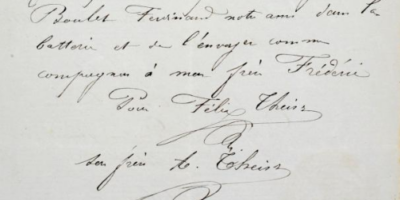 Boulet Ferdinand notre ami dans la
batterie et de l'envoyer comme
compagnon à mon frère Frédéric
Pour Félix Theiss
son frère A. Theiss